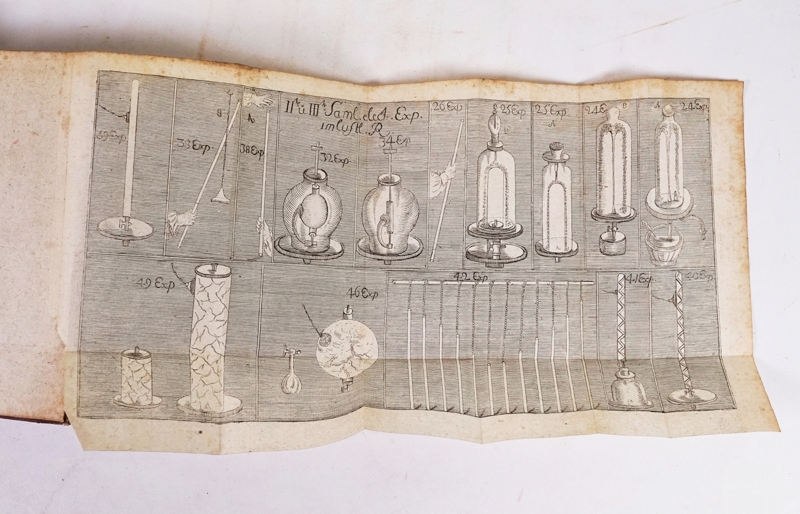 IIte u IIIte Saml. elect. Exp.
im luftl. R.
39 Exp.
33 Exp.
B
A
38 Exp
32 Exp.
34 Exp.
26 Exp
B 25 Exp
25 Exp.
A
24 E B
A 24 Exp.
49 Exp
46 Exp
42 Exp
41 Exp